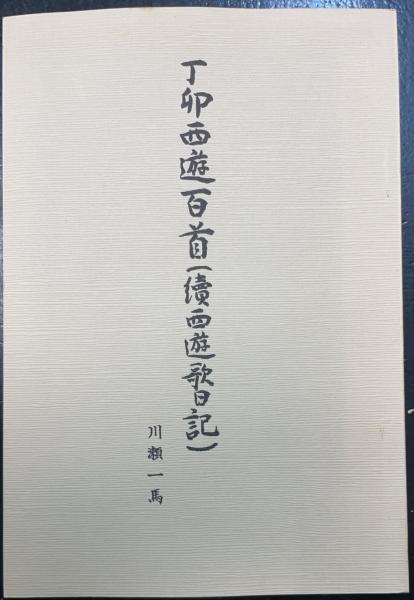 丁卯西遊百首(續西遊歌日記)
川瀬一馬